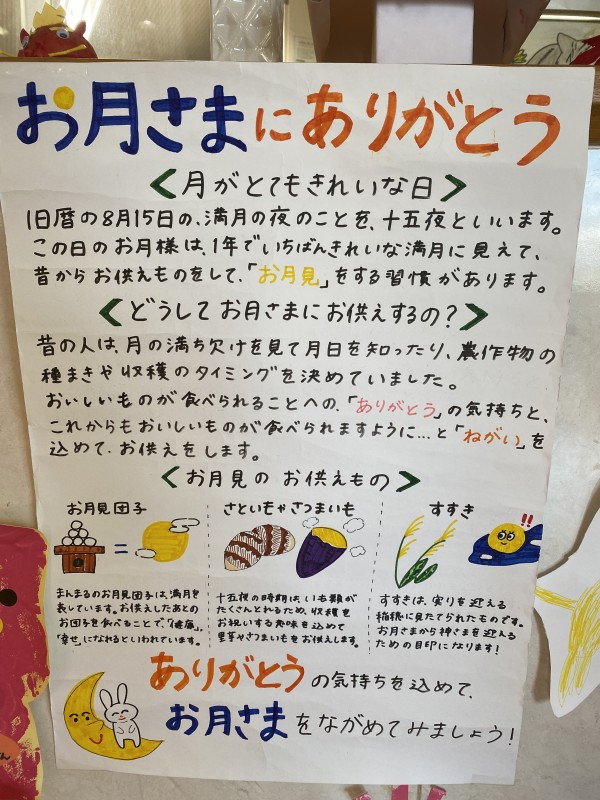 お月さまにありがとう
<月がとてもきれいな日>
旧暦の8月15日の、満月の夜のことを、十五夜といいます。
この日のお月様は、1年でいちばんきれいな満月に見えて、
昔からお供えものをして、「お月見」をする習慣があります。
<どうしてお月さまにお供えするの?>
昔の人は、月の満ち欠けを見て月日を知ったり、農作物の
種まきや収穫のタイミングを決めていました。
おいしいものが食べられることへの、「ありがとう」の気持ちと、
これからもおいしいものが食べられますように…と「ねがい」を
込めて、お供えをします。
<お月見の お供えもの>
お月見団子
まんまるのお月見団子は、満月を
表しています。お供えしたあとの
お団子を食べることで、「健康」、
「幸せ」になれるといわれています。
さといもやさつまいも
十五夜の時期は、いも類が
たくさんとれるため、収穫を
お祝いする意味を込めて
里芋やさつまいもをお供えします。
すすき
!!
すすきは、実りを迎える
稲穂に見たてられたものです。
お月さまから神さまを迎える
ための目印になります!
ありがとうの気持ちを込めて、
お月さまをながめてみましょう!